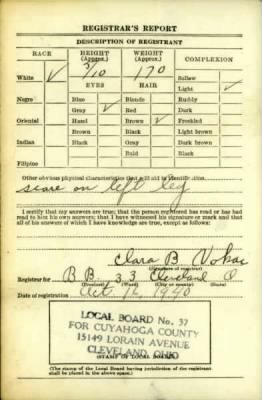 REGISTRAR'S REPORT
DESCRIPTION OF REGISTRANT
RACE HEIGHT (Approx.) WEIGHT (Approx.) COMPLEXION
5/10 170
White ✓ Sallow
EYES HAIR Light ✓
Negro Blue Blonde Ruddy
Gray ✓ Red Dark
Oriental Hazel Brown ✓ Freckled
Brown Black Light brown
Indian Black Gray Dark brown
Bald Black
Filipino
Other obvious physical characteristics that will aid in identification
scare on left leg
I certify that my answers are true; that the person registered has read or has had
read to him his own answers; that I have witnessed his signature or mark and that
all of his answers of which I have knowledge are true, except as follows:
Clara B.
(Signature of registrar)
Registrar for B B. 33 Cleveland O
(Precinct) (Ward) (City or county) (State)
Date of registration Oct. 16, 1940
LOCAL BOARD No. 37
FOR CUYAHOGA COUNTY
15149 LORAIN AVENUE
CLEVELAND, OHIO
(STAMP OF LOCAL BOARD)
(The stamp of the Local Board having jurisdiction of the registrant
shall be placed in the above space.)